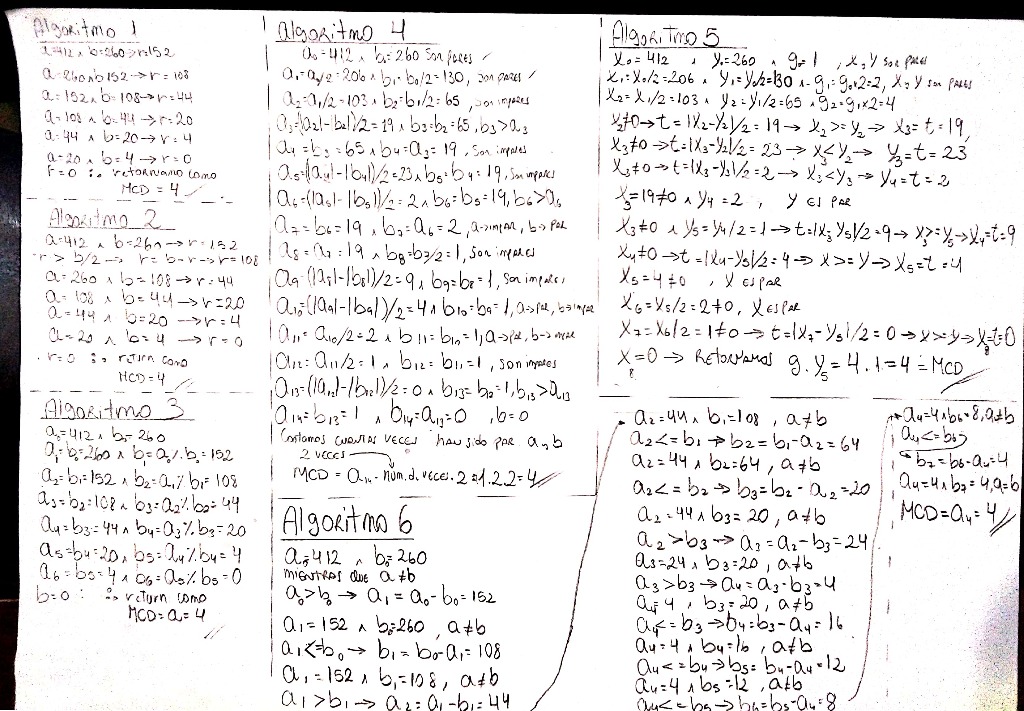 Algoritmo 1
a=412 ∧ b=260→r=152
a=260∧b152→r=108
a=152∧b=108→r=44
a=108∧b=44→r=20
a=44 ∧ b=20→r=4
a=20∧b=4→r=0
r=0 ∴ retornamo como
MCD=4
Algoritmo 2
a=412 ∧ b=260→r=152
r > b/2 → r=b-r→r=108
a=260∧b=108→r=44
a=108 ∧ b=44→r=20
a=44 ∧ b=20 →r=4
a=20∧b=4 →r=0
r=0 ∴ return como
MCD=4
Algoritmo 3
a₀=412 ∧ b₀=260
a₁=b₀=260∧b₁=a₀%b₀=152
a₂=b₁=152∧b₂=a₁%b₁=108
a₃=b₂=108∧b₃=a₂%b₂=44
a₄=b₃=44∧b₄=a₃%b₃=20
a₅=b₄=20∧b₅=a₄%b₄=4
a₆=b₅=4∧b₆=a₅%b₅=0
b=0 : ∴ return como
MCD=a=4
Algoritmo 4
a₀=412 ∧ b₀=260 son pares
a₁=a₀/2=206∧b₁=b₀/2=130, son pares
a₂=a₁/2=103∧b₂=b₁/2=65, son impares
a₃=(|a₂|-|b₂|)/2=19∧b₃=b₂=65, b₃>a₃
a₄=b₃=65∧b₄=a₃=19, son impares
a₅=(|a₄|-|b₄|)/2=23∧b₅=b₄=19, son impares
a₆=(|a₅|-|b₅|)/2=2∧b₆=b₅=19, b₆>a₆
a₇=b₆=19∧b₇=a₆=2, a→impar, b→par
a₈=a₇=19∧b₈=b₇/2=1, son impares
a₉=(|a₈|-|b₈|)/2=9∧b₉=b₈=1, son impares
a₁₀=(|a₉|-|b₉|)/2=4∧b₁₀=b₉=1, a→par, b→impar
a₁₁=a₁₀/2=2∧b₁₁=b₁₀=1, a→par, b→impar
a₁₂=a₁₁/2=1 ∧ b₁₂=b₁₁=1, son impares
a₁₃=(|a₁₂|-|b₁₂|)/2=0∧b₁₃=b₁₂=1, b₁₃>a₁₃
a₁₄=b₁₃=1 ∧ b₁₄=a₁₃=0, b=0
Contamos cuentas veces han sido par a∧b
2 veces
MCD=a₁₄·num.d.veces.2=1.2.2=4
Algoritmo 5
x₀=412 ∧ y₀=260 ∧ g₀=1, x,y son pares
x₁=x₀/2=206 ∧ y₁=y₀/2=130 ∧ g₁=g₀x2=2, x,y son pares
x₂=x₁/2=103 ∧ y₂=y₁/2=65 ∧ g₂=g₁x2=4
x₂≠0→t=|x₂-y₂|/2=19→x₂>=y₂→x₃=t=19
x₃≠0→t=|x₃-y₂|/2=23→x₃<y₂→y₃=t=23
x₃≠0→t=|x₃-y₃|/2=2→x₃<y₃→y₄=t=2
x₃=19≠0∧y₄=2, y es par
x₃≠0∧y₅=y₄/2=1→t=|x₃y₅|/2=9→x₃>=y₅→x₄=t=9
x₄≠0→t=|x₄-y₅|/2=4→x>=y→x₅=t=4
x₅=4≠0, x es par
x₆=x₅/2=2≠0, x es par
x₇=x₆/2=1≠0→t=|x₇-y₅|/2=0→x>=y→x₈=t=0
x₈=0→ Retornamos g.y₅=4.1=4=MCD
Algoritmo 6
a₀=412 ∧ b₀=260
mientras que a≠b
a₀>b₀→a₁=a₀-b₀=152
a₁=152∧b₀=260, a≠b
a₁<=b₀→b₁=b₀-a₁=108
a₁=152∧b₁=108, a≠b
a₁>b₁→a₂=a₁-b₁=44
a₂=44∧b₁=108, a≠b
a₂<=b₁→b₂=b₁-a₂=64
a₂=44∧b₂=64, a≠b
a₂<=b₂→b₃=b₂-a₂=20
a₂=44∧b₃=20, a≠b
a₂>b₃→a₃=a₂-b₃=24
a₃=24∧b₃=20, a≠b
a₃>b₃→a₄=a₃-b₃=4
a₄=4, b₃=20, a≠b
a₄<=b₃→b₄=b₃-a₄=16
a₄=4∧b₄=16, a≠b
a₄<=b₄→b₅=b₄-a₄=12
a₄=4∧b₅=12, a≠b
a₄<=b₅→b₆=b₅-a₄=8
a₄=4∧b₆=8, a≠b
a₄<=b₆
b₇=b₆-a₄=4
a₄=4∧b₇=4, a=b
MCD=a₄=4